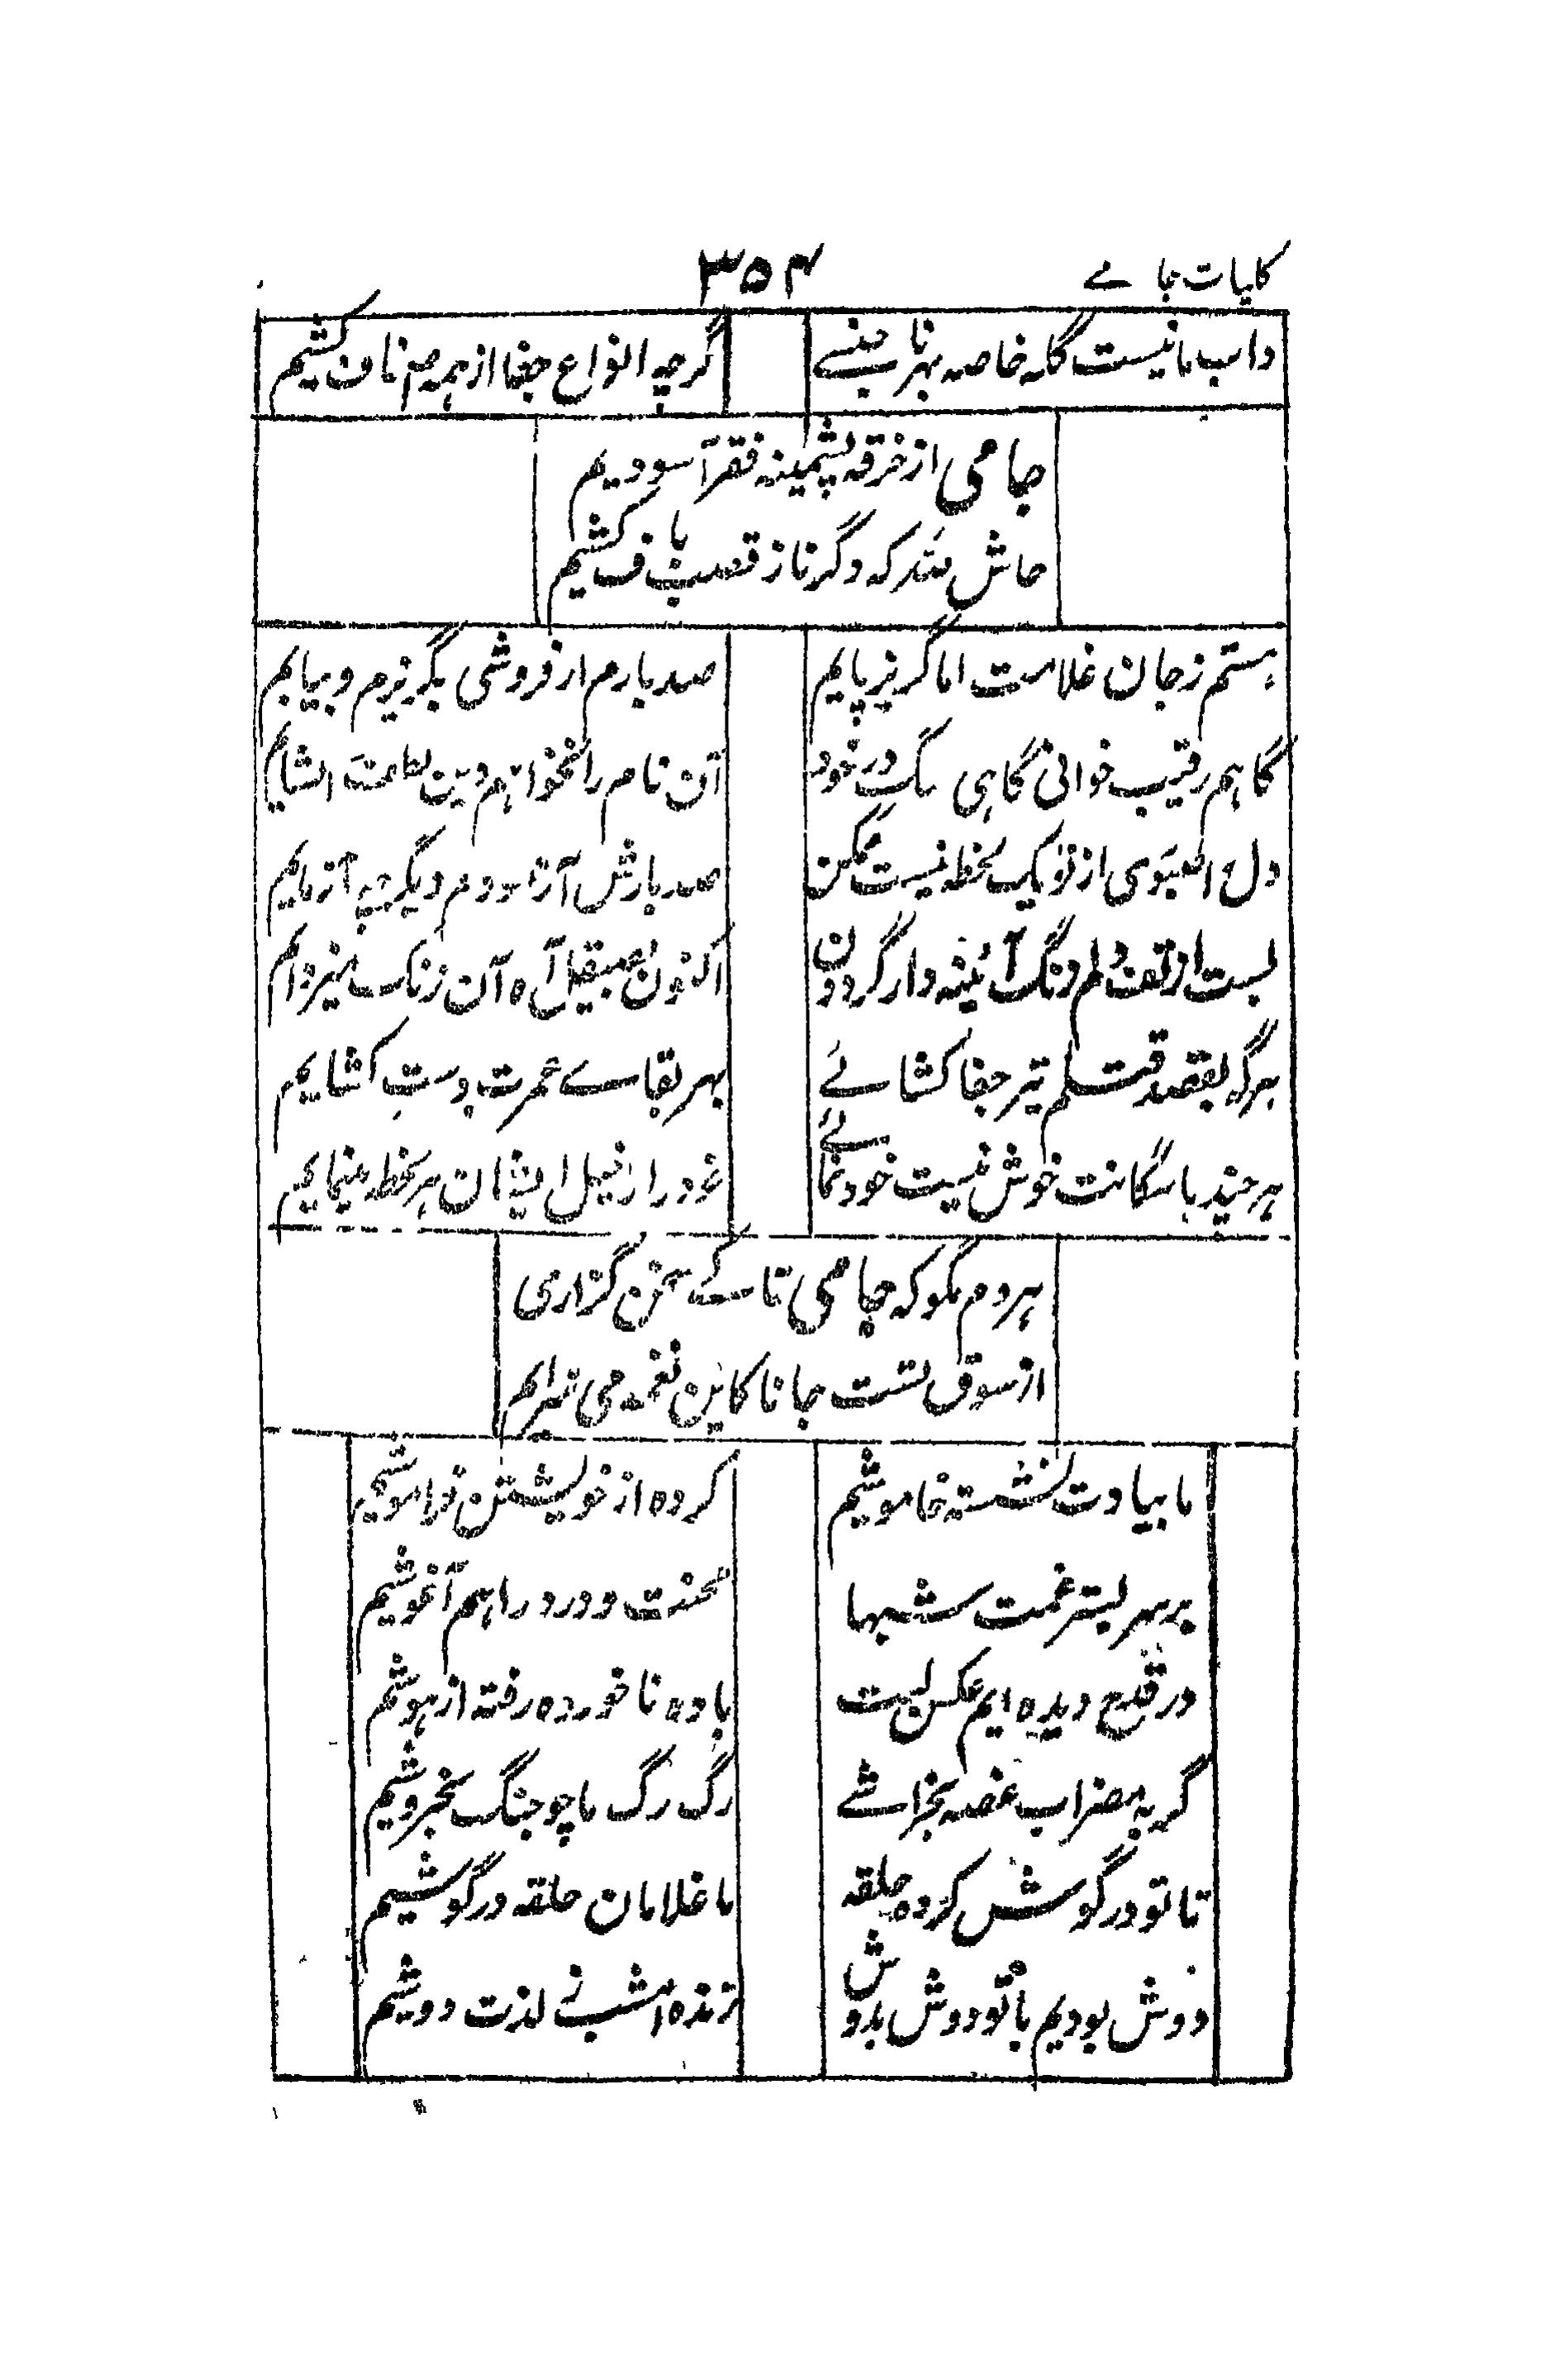 کلیات جامے ۳۵۴
داب ما نیست گله خاصه بهر ناجنسے گرچه انواع جفا از همه اصناف کشیم
جامی از خرقه پشمینه فقر آسودیم
حاش لله که دگر ناز قصب باف کشیم
هستم ز جان غلامت اما گریز پایم صد بارم ار فروشی بگریزم و بیایم
گاهم رقیب خوانی گاهی سگ در خود آن نام را نخواهم وین لطف را نشایم
دل را صبوری از تو یک لحظه نیست ممکن صد بارش آزمودم دیگر چه آزمایم
بست از تف دلم زنگ آئینه وار گردون اکنون بصیقل آه آن زنگ میزدایم
هرگه بقصد قتلم تیر جفا کشائے بهر بقاے عمرت دست کشایم
هر چند با سگانت خوش نیست خودنمائے خود را ز خیل ایشان هر لحظه مینمایم
هر دم مگو که جامی تا کے سخن گزاری
از شوق تست جانا کاین نغمه می سرایم
ما بیادت نشسته خاموشیم کرده از خویشتن فراموشیم
بر سر بستر غمت شبها محنت و درد را هم آغوشیم
در قدح دیده ایم عکس لبت باده ناخورده رفته از هوشیم
گر به مضراب غصه بخراشے رگ رگ ما چو چنگ بخروشیم
تا تو در گوش کرده حلقه ما غلامان حلقه در گوشیم
دوش بودیم با تو دوش بدوش زنده امشب ز لذت دوشیم